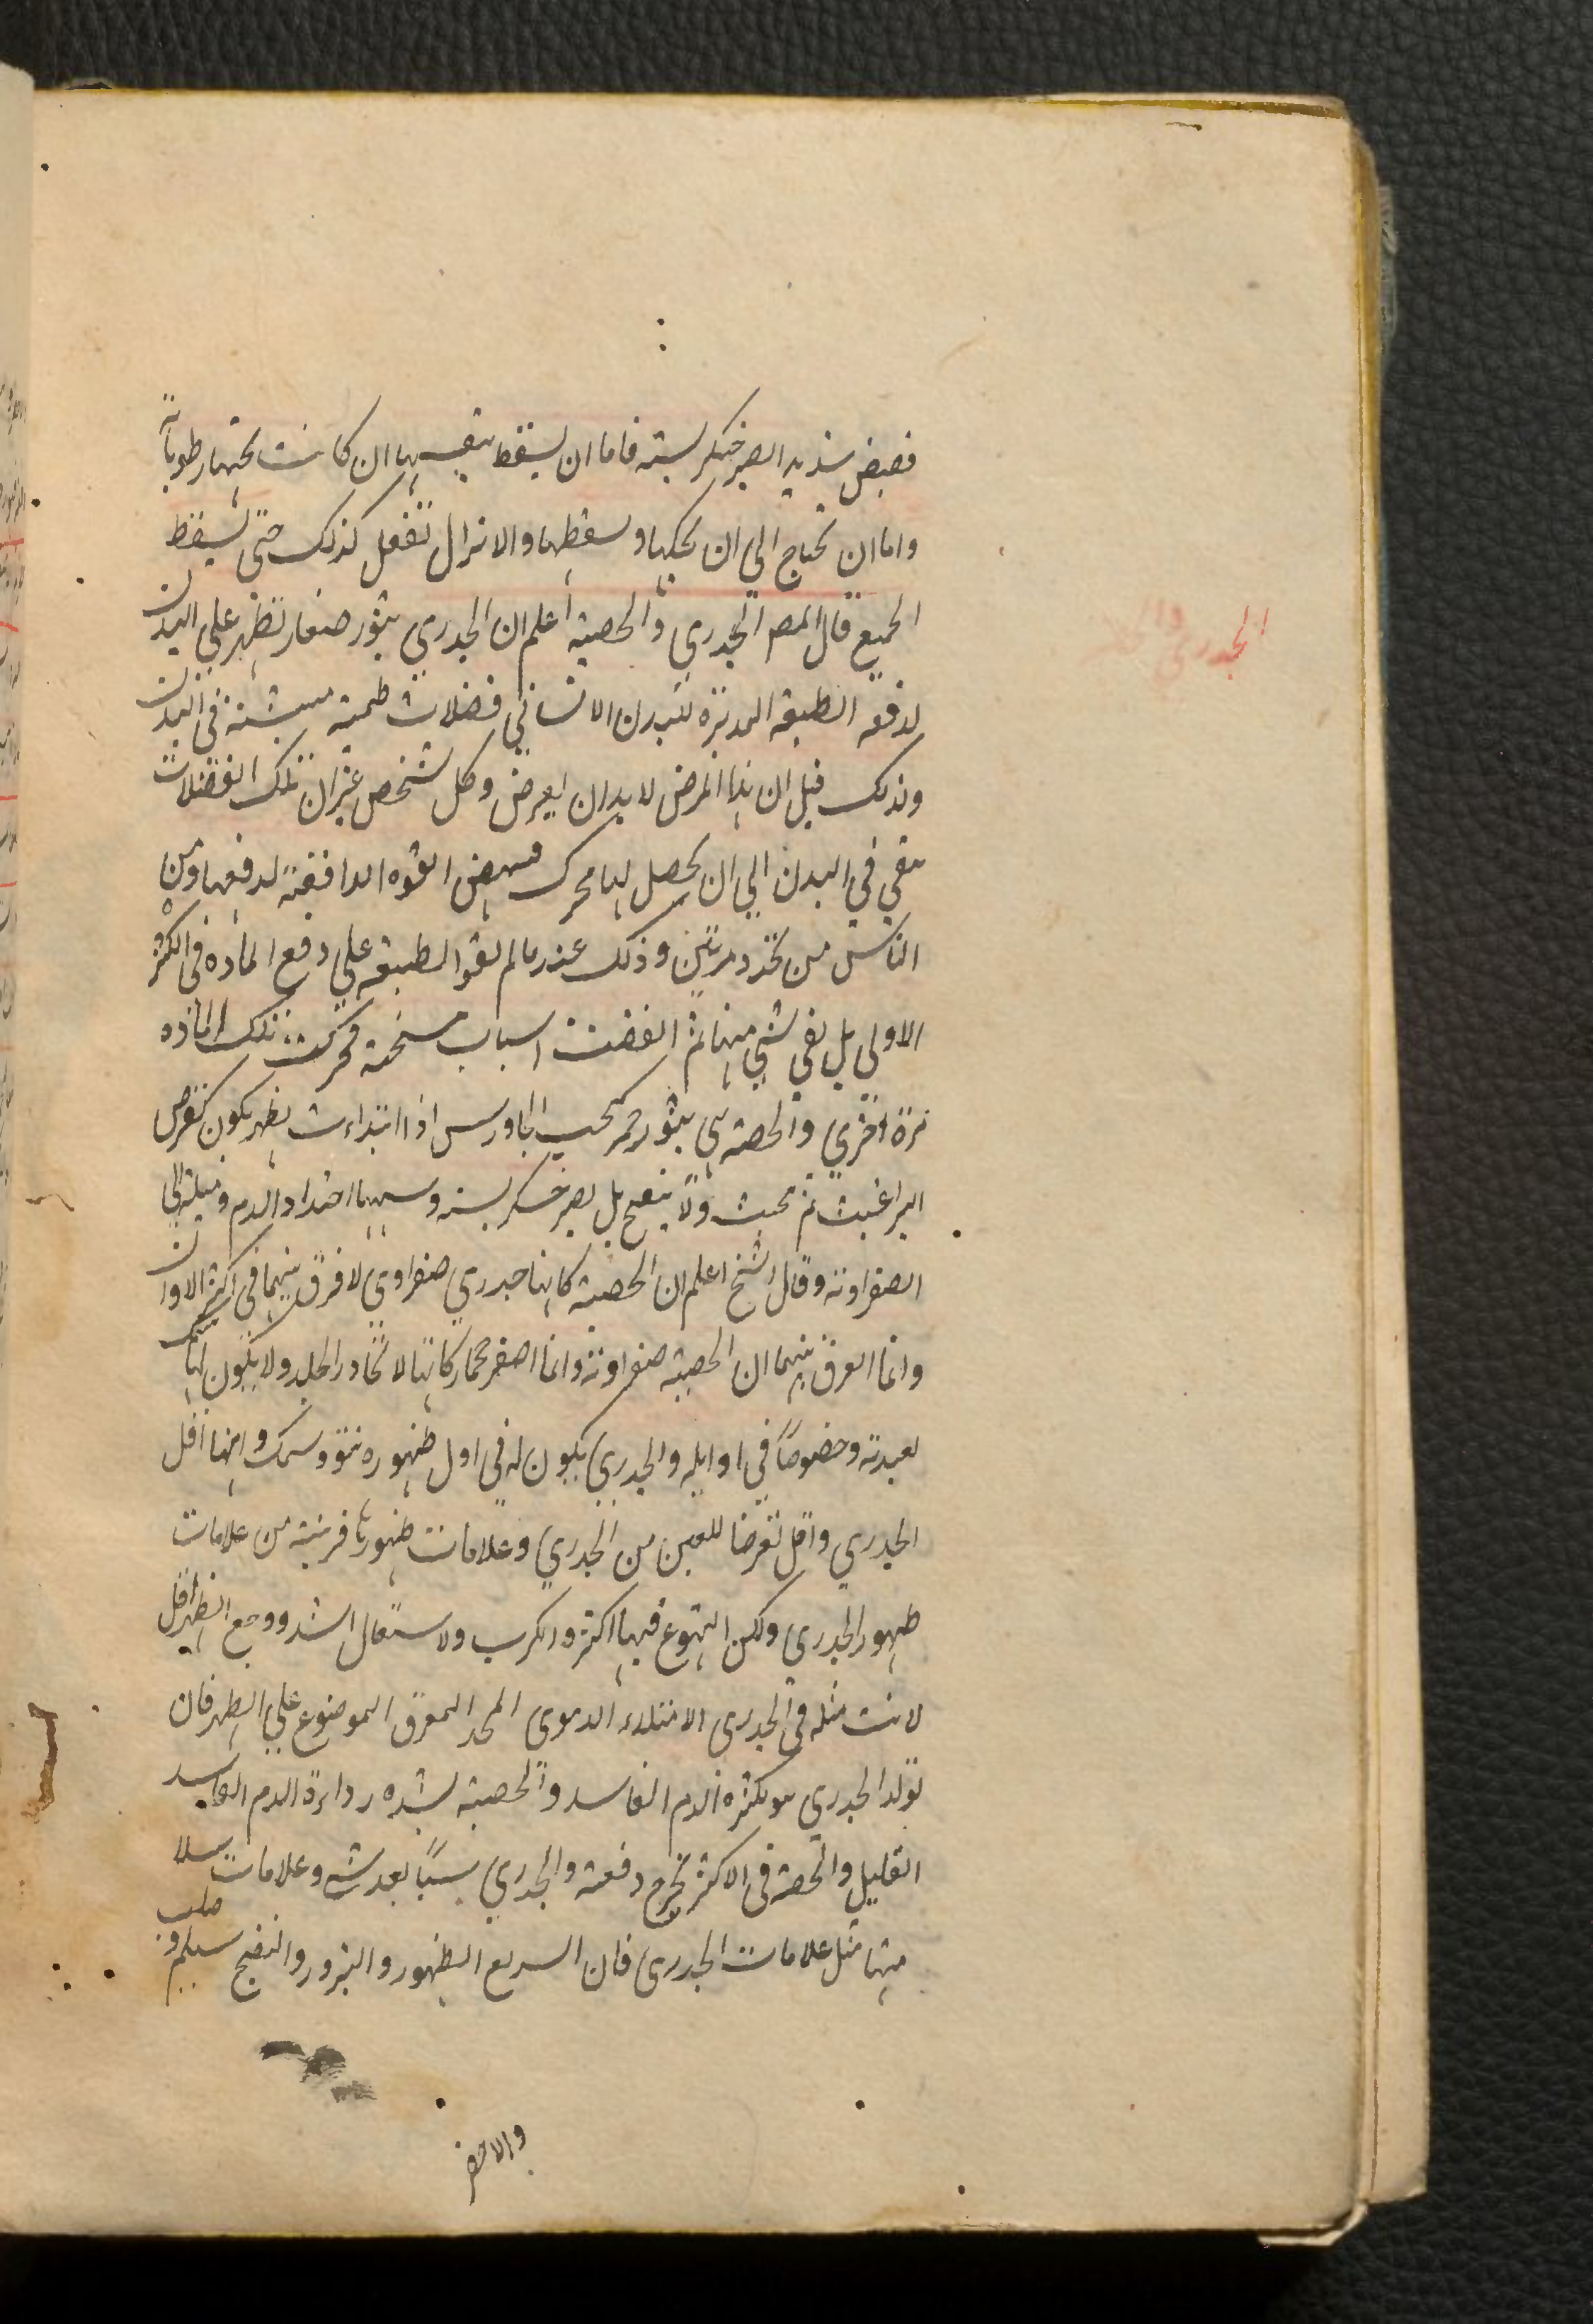 فصبض شديد ليصير خشكريشته فاما ان يسقط بنفسها ان كانت تحتها رطوبات
واما ان تحتاج الي ان تحكها وتسقطها والا تزال تفعل كذلك حتى يسقط
الجميع قال المص الجدري والحصبة اعلم ان الجدري بثور صغار تظهر علي البدن
الجدري
لدفعه الطبيعة المدبرة للبدن الانساني فضلات طمثية في البدن
ولذلك قيل ان هذا المرض لابد ان يعرض وكل شخص غير ان تلك الفضلات
تبقي في البدن الي ان يحصل لها محرك فتنهض القوه الدافعة لدفعها ومن
الناس من تجدر مرتين وذلك عند ما لم تقو الطبيعة علي دفع الماده في الكثرة
الاولي بل بقي شي منها ثم اتفقت اسباب مسخنة فحركت تلك الماده
مرة اخري والحصبه هي بثور حمر كحب الجاورس اذا ابتداءت بظهر يكون كقرص
البراغيث ثم تحبب ولا ينضج بل يصير خشكريشه وسببها احتداد الدم وميله الي
الصفراوية وقال الشيخ اعلم ان الحصبة كانها جدري صفراوي لا فرق بينهما في اكثر الاوان
وانما الفرق بينهما ان الحصبة صفراوية وانها اصغر حجما وكانها لا تجاوز الجلد ولا يكون لها سمك
يعتد به وخصوصاً في اوايله والجدري يكون له في اول ظهوره نتو وسمك وانها اقل
الجدري واقل تعرضا للعين من الجدري وعلامات ظهورها قريبة من علامات
ظهور الجدري ولكن التهوع فيها اكثر والكرب والاشتعال اشد ووجع الظهر اقل
لانت مثله في الجدري الامتلاء الدموي الممدد للعرق الموضوع علي الظهر فان
تولد الجدري هو لكثرة الدم الفاسد والحصبة لشده رداءة الدم الفاسد
القليل والحصبه في الاكثر تخرج دفعة والجدري شيئاً بعد شي وعلامات سلا
منها مثل علامات الجدري فان السريع الظهور والبروز والنضج سليم و صلب
والاخضر